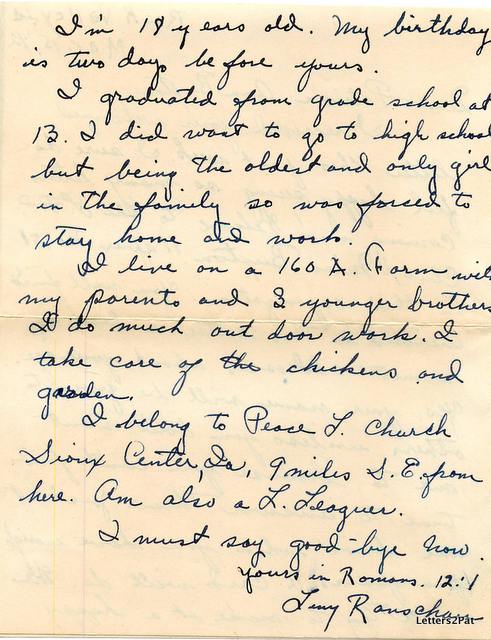 I'm 18 years old. My birthday
is two days before yours.
I graduated from grade school at
13. I did want to go to high school
but being the oldest and only girl
in the family so was forced to
stay home and work.
I live on a 160 A. Farm with
my parents and 3 younger brothers
I do much out door work. I
take care of the chickens and
garden.
I belong to Peace L. Church
Sioux Center, Ia, 9 miles S.E. from
here. Am also a L. Leaguer.
I must say good-bye now.
Yours in Romans. 12:1
Letters2Pat